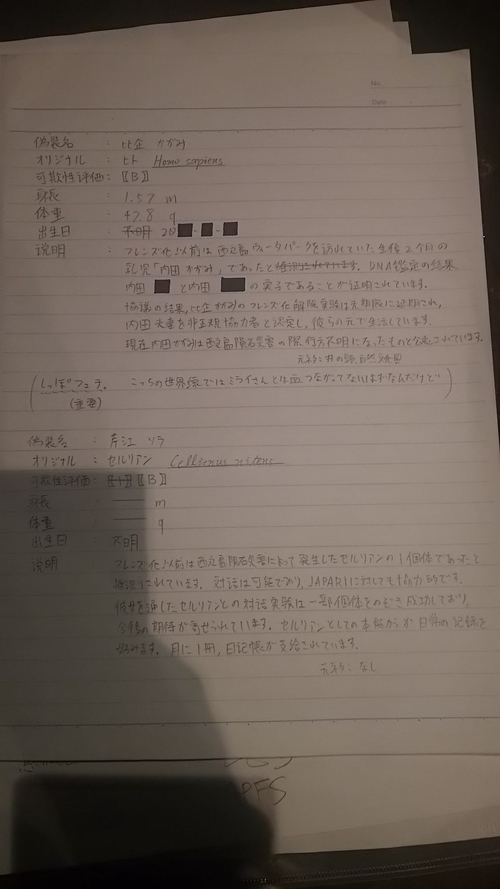 No.
Date
偽装名 : 比企 かがみ
オリジナル : ヒト Homo sapiens
可欺性評価 : 〚B〛
身長 : 1.57 m
体重 : 47.8 g
出生日 : 不明 20■-■-■
説明 : フレンズ化以前は西之島ウォータパークを訪れていた生後2ヶ月の
乳児「内田 かがみ」であったと推測されています。DNA鑑定の結果
内田 ■ と内田 ■ の実子であることが証明されています。
協議の結果、比企かがみのフレンズ化解除実験は無期限に延期され、
内田夫妻を非正規協力者と決定し、彼らの元で生活しています。
現在内田かがみは西之島隕石災害の際行方不明になったものと公表されています。
(しっぽフェチ。 こっちの世界線ではミライさんとは血つながってないはずなんだけど)
(重要)
偽装名 : 芹江 ソラ
オリジナル : セルリアン
可欺性評価 : 〚B〛
身長 : —— m
体重 : —— g
出生日 : 不明
説明 フレンズ化以前は西之島隕石災害によって発生したセルリアンの1個体であったと
推測されています。対話は可能であり、JAPARIに対しても協力的です。
彼女を通したセルリアンとの対話実験は一部個体をのぞき成功しており、
今後の期待が寄せられています。セルリアンとしての本能からか日常の記録を
好みます。月に1冊、日記帳が支給されています。
元ネタ: なし
PFS